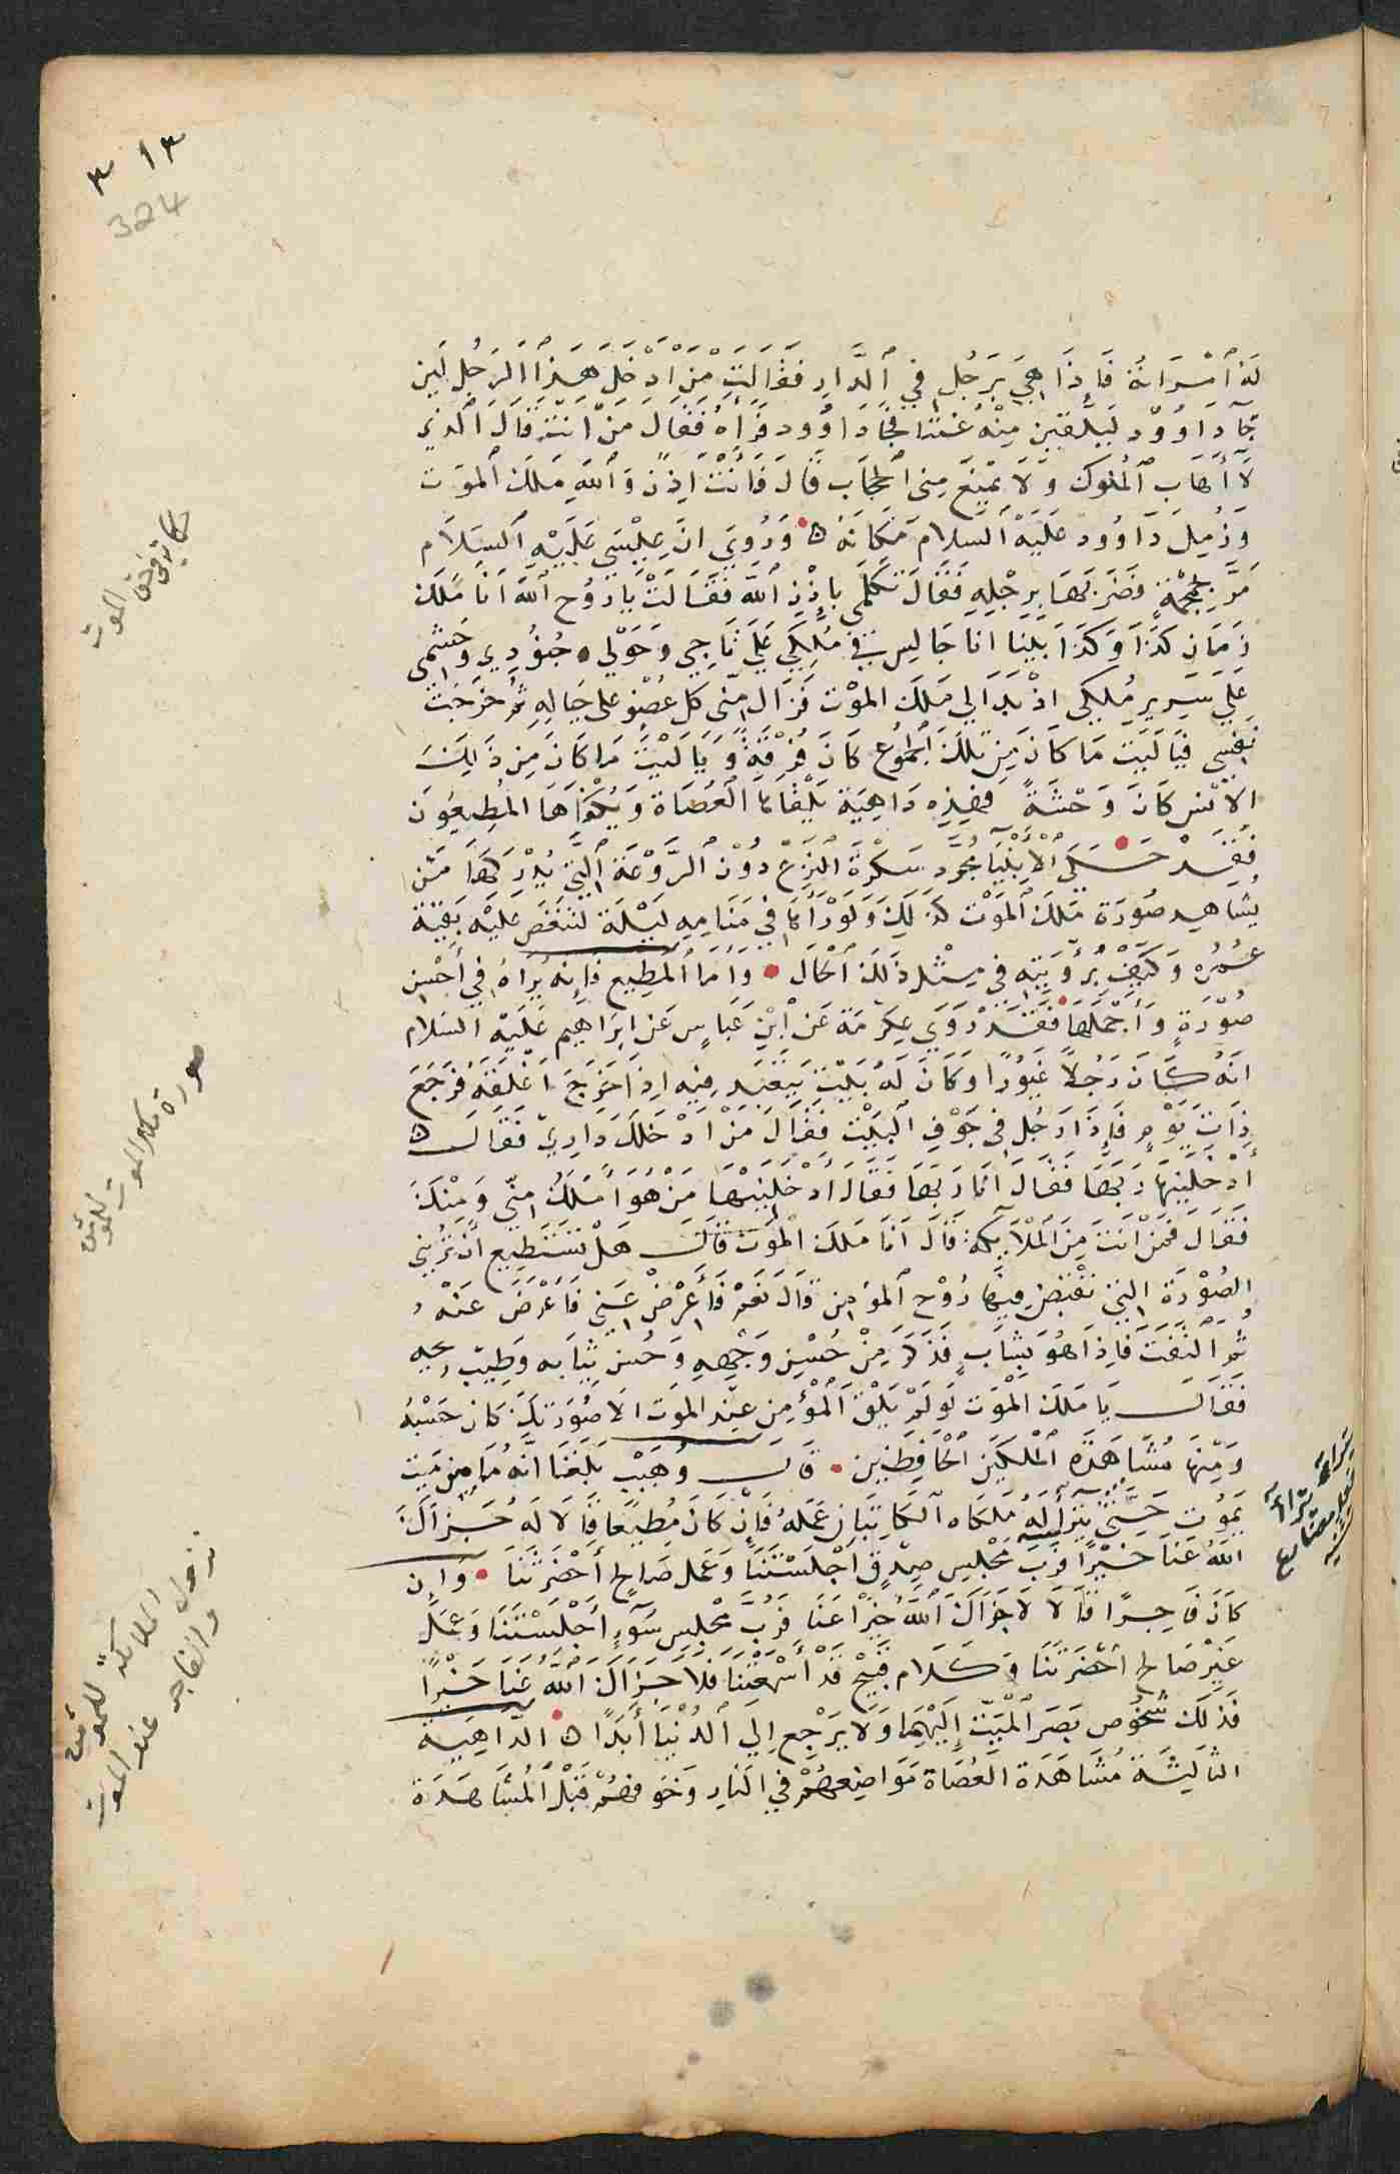 ٣١٣
324
له امراته فاذا هي برجل في الدار فقالت من ادخل هذا الرجل لين
جآ داوود ليلقين منه عنتا فجا داوود فراه فقال من انت قال الذي
لا اهاب الملوك ولا يمنع مني الحجاب قال فانت اذن والله ملك الموت
وزمل داوود عليه السلام مكانه ه وروي ان عيسى عليه السلام
مر بجمجمة فضربها برجله فقال تكلمي باذن الله فقالت يا روح الله انا ملك
زمان كذا وكذا بينا انا جالس في ملكي علي تاجي وحولي جنودي وحشمي
علي سرير ملكي اذ بدا لي ملك الموت فزال مني كل عضو على حياله ثم خرجت
نفسي فيا ليت ما كان من تلك الجموع كان فرقة ويا ليت ما كان من ذلك
الانس كان وحشة فهذه داهية يلقاها العصاة ويكفاها المطيعون
فقد حكى الانبيا مجرد سكرة النزع دون الروعة التي يدركها من
يشاهد صورة ملك الموت كذلك ولو راها في منامه ليلة لتنغص عليه بقية
عمره وكيف برؤيته في مثل ذلك الحال واما المطيع فانه يراه في أحسن
صورة وأجملها فقد روى عكرمة عن ابن عباس عن ابراهيم عليه السلام
انه كان رجلا غيورا وكان له بيت يتعبد فيه اذا خرج اغلقه فرجع
ذات يوم فاذا رجل في جوف البيت فقال من ادخلك داري فقال ه
أدخلنيها ربها فقال انا ربها فقال أدخلنيها من هو أملك مني ومنك
فقال فمن انت من الملايكة قال انا ملك الموت قال هل تستطيع ان تريني
الصورة التي تقبض فيها روح المؤمن قال نعم فأعرض عني فاعرض عنه
ثم التفت فاذا هو بشاب فذكر من حسن وجهه وحسن ثيابه وطيب ريحه
فقال يا ملك الموت لو لم يلق المؤمن عند الموت الا صورتك كان حسبه
ومنها مشاهدة الملكين الحافظين قال وهيب بلغنا انه ما من ميت
يموت حتى يترأ له ملكاه الكاتبان عمله فان كان مطيعا قالا له جزاك
الله عنا خيرا فرب مجلس صدق اجلستنا وعمل صالح أحضرتنا وان
كان فاجرا قالا لا جزاك الله خيرا عنا فرب مجلس سوء أجلستنا وعمل
غير صالح احضرتنا وكلام قبيح قد أسمعتنا فلا جزاك الله عنا خيرا
فذلك شخوص بصر الميت إليهما ولا يرجع الي الدنيا أبدا ه الداهية
الثالثة مشاهدة العصاة مواضعهم في النار وخوفهم قبل المشاهدة
صورة ملك الموت للمؤمن
الملائكة للمؤمن
والفاجر عند الموت